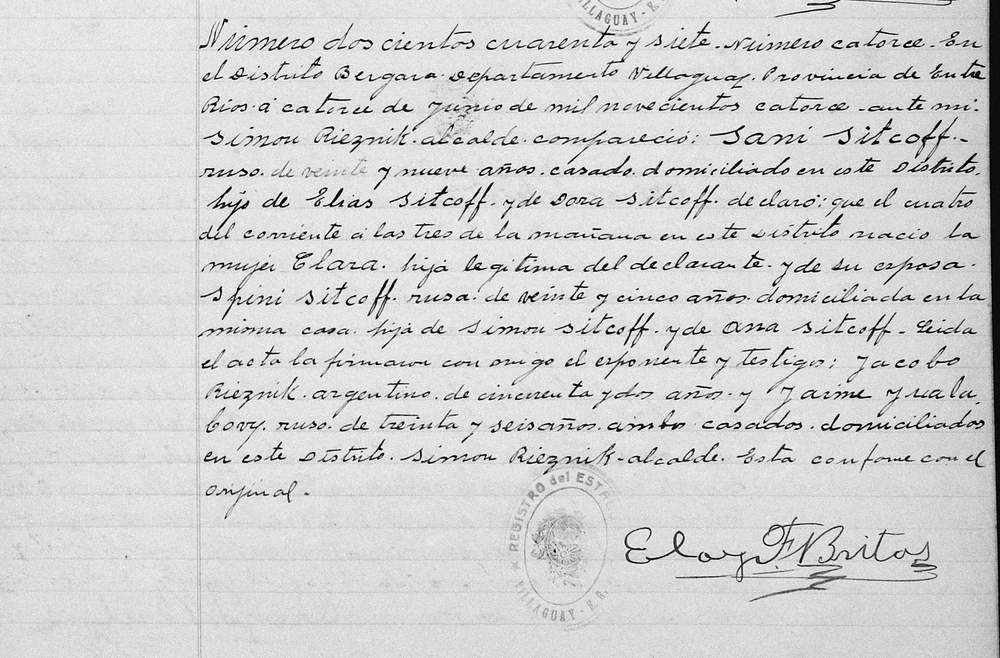 VILLAGUAY
Número doscientos cuarenta y siete. Número catorce. En
el Distrito Bergara. Departamento Villaguay. Provincia de Entre
Rios. á catorce de Junio de mil novecientos catorce. ante mi.
Simon Rieznik. alcalde. compareció: Sani Sitcoff.
ruso. de veinte y nueve años. casado. domiciliado en este Distrito.
hijo de Elias Sitcoff. y de Dora Sitcoff. declaró: que el cuatro
del corriente á las tres de la mañana en este Distrito nacio la
mujer Clara. hija legitima del declarante. y de su esposa.
Spini Sitcoff. rusa. de veinte y cinco años. domiciliada en la
misma casa. hija de Simon Sitcoff. y de Ana Sitcoff. Leida
el acta la firmaron con migo el esponente y testigos: Jacobo
Rieznik. argentino. de cincuenta y dos años. y Jaime
ruso. de treinta y seis años. ambos casados. domiciliados
en este Distrito. Simon Rieznik. alcalde. Esta conforme con el
original.
REGISTRO del ESTADO
VILLAGUAY - E. R.
Eloy F Britos